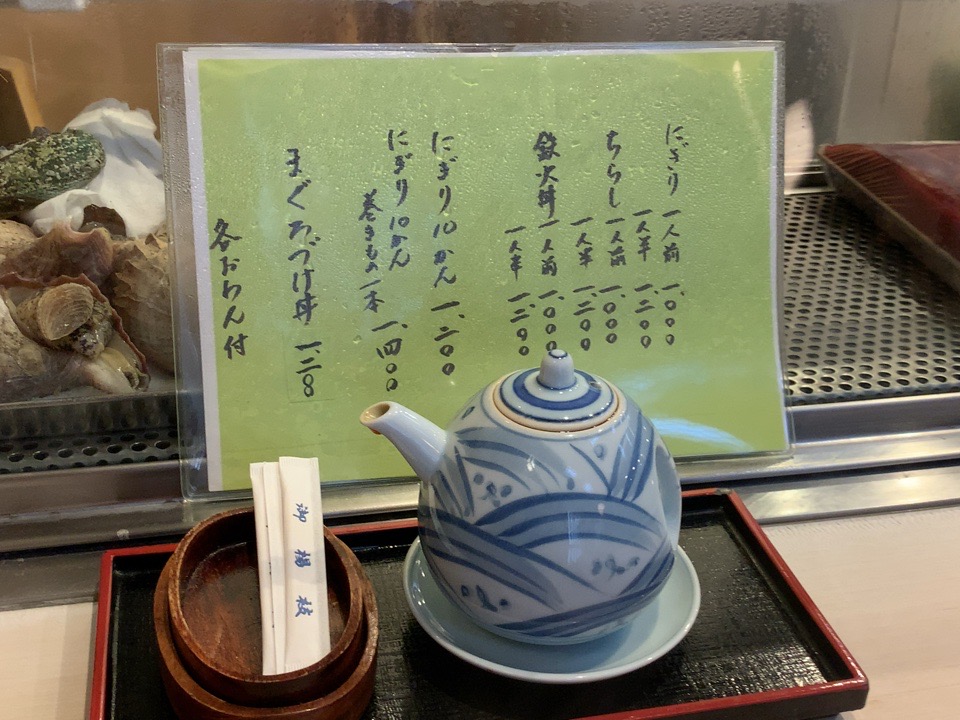 にぎり 一人前 一、〇〇〇
一人半 一、二〇〇
ちらし 一人前 一、〇〇〇
一人半 一、二〇〇
鉄火丼 一人前 一、〇〇〇
一人半 一、二〇〇
にぎり10かん 一、二〇〇
にぎり10かん
巻きもの一本 一、四〇〇
まぐろづけ丼 一、二〇
各おわん付
御楊枝